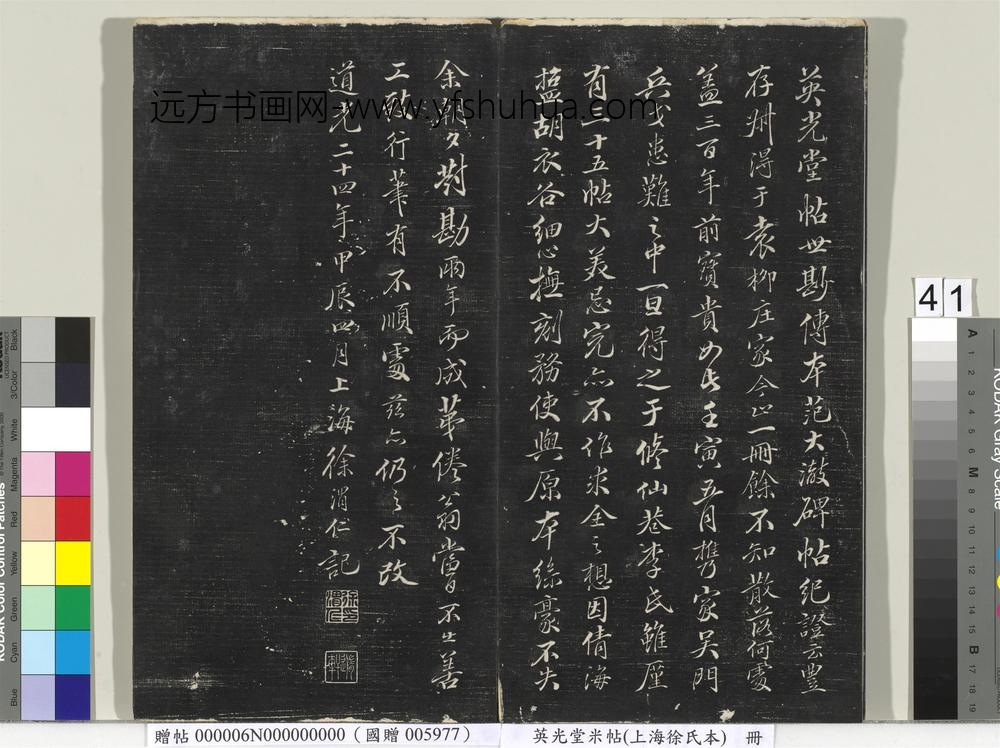 英光堂帖世尠傳本范大澂碑帖紀證云豐
存狀得于袁柳庄家今止一冊餘不知散落何處
蓋三百年前寶貴如此壬寅五月携家吳門
兵戈患難之中一旦得之于修仙巷李氏雖厪
有二十五帖大美忌完亦不作求全之想因倩海
鹽胡衣谷細心撫刻務使與原本絲豪不失
余朝夕對勘兩年而成第倦翁當日不出善
工致行筆有不順處茲亦仍之不改
道光二十四年甲辰四月上海徐渭仁記
徐渭仁
远方书画网-www.yfshuhua.com
41
贈帖 000006N000000000（國贈 005977）
英光堂米帖(上海徐氏本) 冊
KODAK Color Control Patches
Blue
Cyan
Green
Yellow
Red
Magenta
White
3/Color
Black
KODAK Gray Scale
A 1 2 3 4 5 6 M 8 9 10 11 12 13 14 15 B 17 18 19